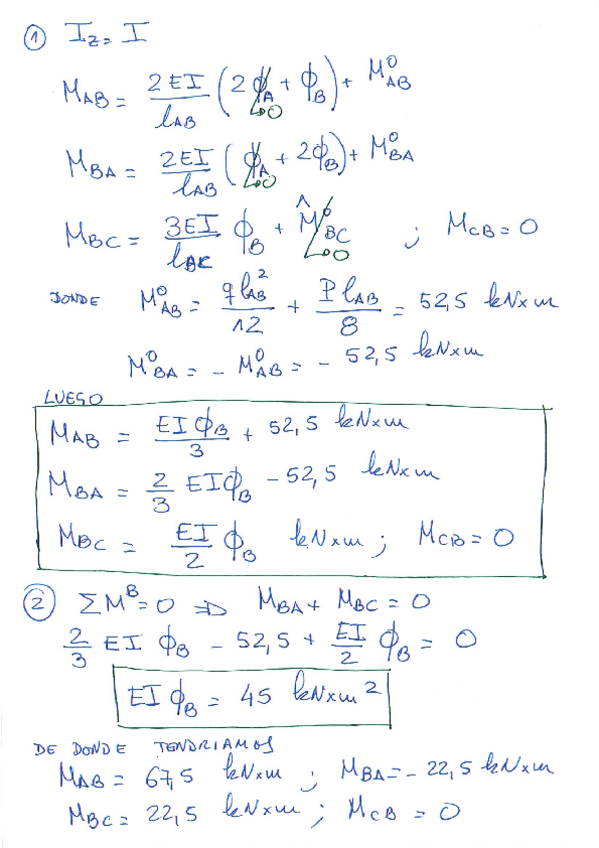 ① I_z = I
M_AB = 2EI/l_AB (2ϕ_A→0 + ϕ_B) + M⁰_AB
M_BA = 2EI/l_AB (ϕ_A→0 + 2ϕ_B) + M⁰_BA
M_BC = 3EI/l_BC ϕ_B + M̂⁰_BC→0 ; M_CB = 0
DONDE M⁰_AB = q l_AB²/12 + P l_AB/8 = 52,5 kN×m
M⁰_BA = - M⁰_AB = - 52,5 kN×m
LUEGO
M_AB = EIϕ_B/3 + 52,5 kN×m
M_BA = 2/3 EIϕ_B - 52,5 kN×m
M_BC = EI/2 ϕ_B kN×m ; M_CB = 0
② ΣM^B = 0 ⇒ M_BA + M_BC = 0
2/3 EI ϕ_B - 52,5 + EI/2 ϕ_B = 0
EI ϕ_B = 45 kN×m²
DE DONDE TENDRIAMOS
M_AB = 67,5 kN×m ; M_BA = - 22,5 kN×m
M_BC = 22,5 kN×m ; M_CB = 0